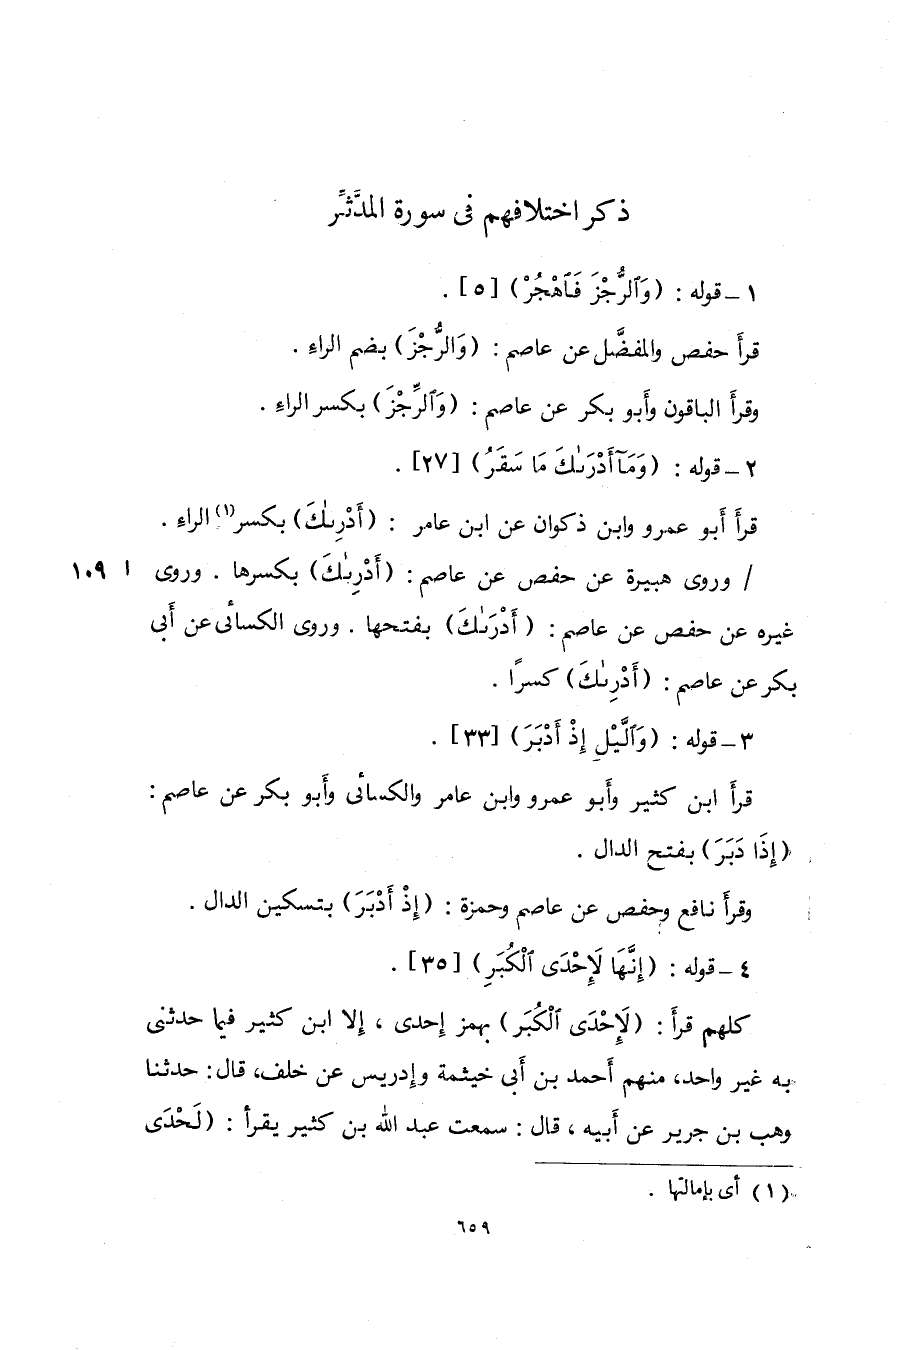 ذكر اختلافهم فى سورة المدَّثِّر
١ ـ قوله : ( وَٱلرُّجْزَ فَٱهْجُرْ ) [ ٥ ] .
قرأ حفص والمفضَّل عن عاصم : ( وَالرُّجْزَ ) بضم الراء .
وقرأ الباقون وأبو بكر عن عاصم : ( وَٱلرِّجْزَ ) بكسر الراء .
٢ ـ قوله : ( وَمَآ أَدْرَىٰكَ مَا سَقَرُ ) [ ٢٧ ] .
قرأ أبو عمرو وابن ذكوان عن ابن عامر : ( أَدْرِىٰكَ ) بكسر(١) الراء .
/ وروى هبيرة عن حفص عن عاصم : ( أَدْرِىٰكَ ) بكسرها . وروى ا ١٠٩
غيره عن حفص عن عاصم : ( أَدْرَىٰكَ ) بفتحها . وروى الكسائى عن أبى
بكر عن عاصم : ( أَدْرِىٰكَ ) كسرًا .
٣ ـ قوله : ( وَٱلَّيْلِ إِذْ أَدْبَرَ ) [ ٣٣ ] .
قرأ ابن كثير وأبو عمرو وابن عامر والكسائى وأبو بكر عن عاصم :
( إِذَا دَبَرَ ) بفتح الدال .
وقرأ نافع وحفص عن عاصم وحمزة : ( إِذْ أَدْبَرَ ) بتسكين الدال .
٤ ـ قوله : ( إِنَّهَا لَإِحْدَى ٱلْكُبَرِ ) [ ٣٥ ] .
كلهم قرأ : ( لَإِحْدَى ٱلْكُبَرِ ) بهمز إحدى ، إلا ابن كثير فيما حدثنى
به غير واحد، منهم أحمد بن أبى خيثمة وإدريس عن خلف، قال : حدثنا
وهب بن جرير عن أبيه ، قال : سمعت عبد الله بن كثير يقرأ : ( لَحْدَى
( ١ ) أى بإمالتها .
٦٥٩